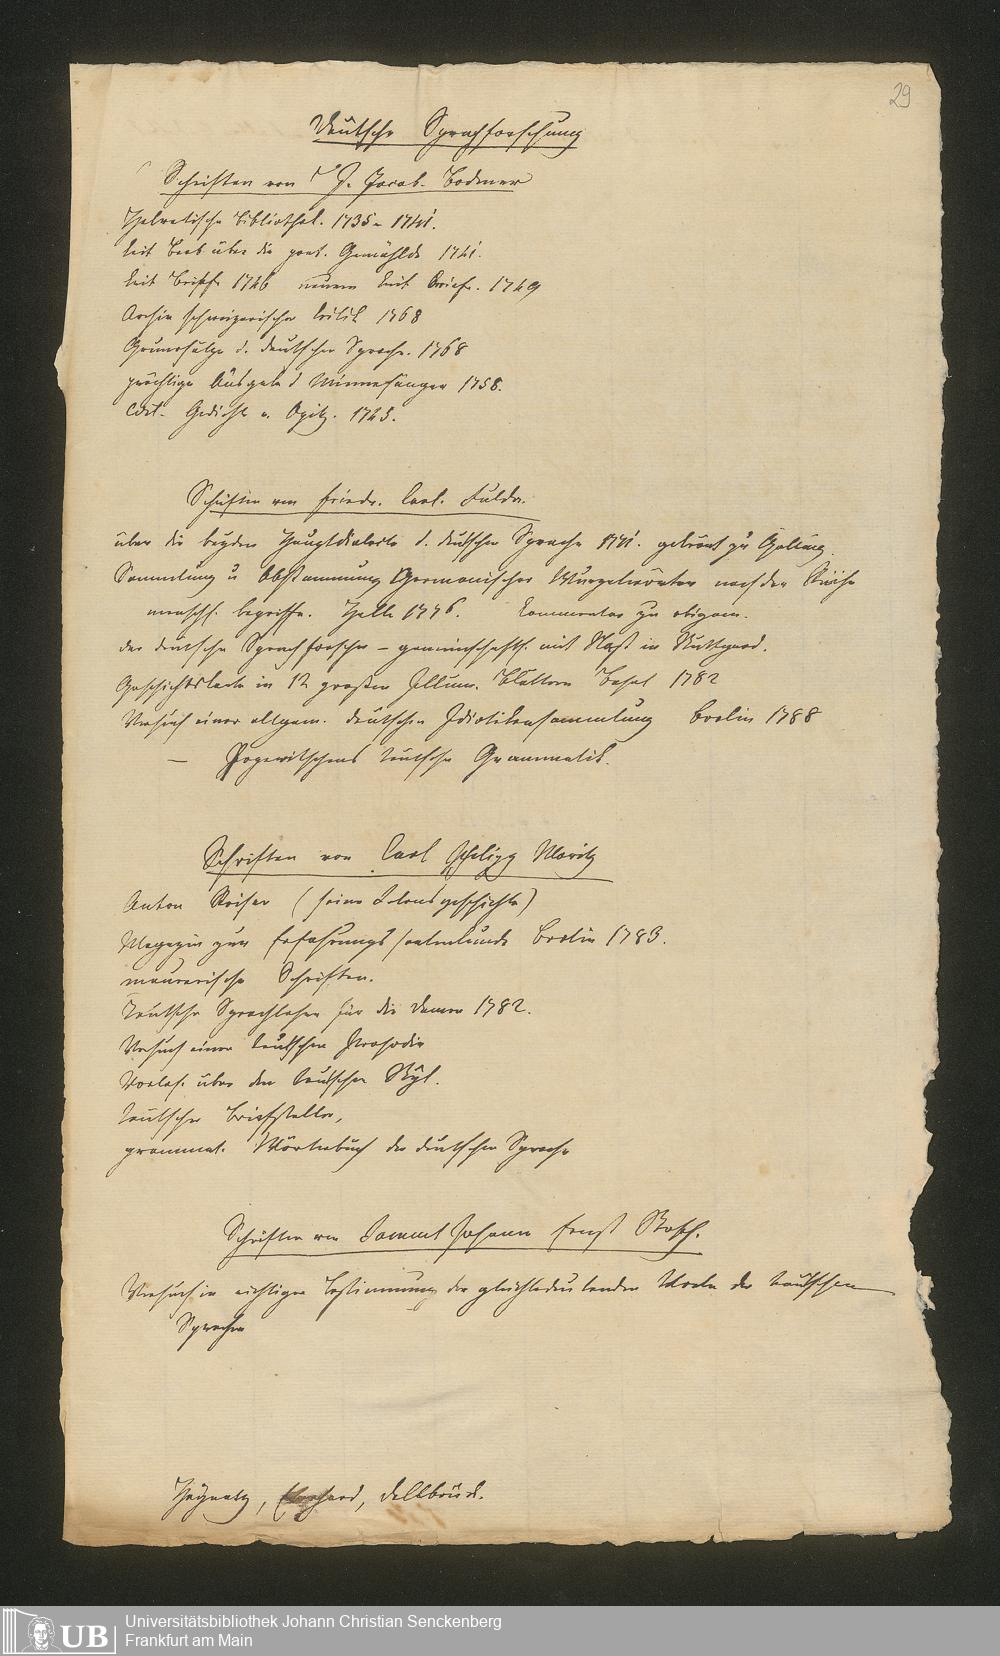 29
Deutsche Sprachforschung
Schriften von J. Jacob. Bodmer
Helvetische Bibliothek. 1735 - 1741.
krit Betr über die poet. Gemählde 1741.
krit Briefe 1746 neuere krit Briefe. 1749
Archiv schweizerischer Critik 1768
Grundsätze d. deutschen Sprache. 1768
prächtige Ausgabe d Minnesänger 1758.
Edit. Gedichte v. Opitz. 1745.
Schriften von Friedr. Carl. Fulda.
über die beyden Hauptdialecte d. deutschen Sprache gekrönt zu Götting.
Sammlung u Abstammung Germanischer Wurzelwörter nach der Reihe
menschl. begriffe. Halle 1776. Commentar zu obigem.
der deutsche Sprachforscher – gemeinschaftl. mit Nast in Stuttgard.
Geschichtskarte in 12 großen Illum. Blättern Basel 1782
Versuch einer allgem. deutschen Idiotikensammlung Berlin 1788
– teutsche Grammatik.
Schriften von Carl Philipp Moritz
Anton Reiser (seine Lebensgeschichte)
Magazin zur Erfahrungsseelenkunde Berlin 1783.
maurerische Schriften.
teutsche Sprachlehre für die Damen 1782.
Versuch einer deutschen Prosodie
Vorles. über den deutschen Styl.
teutscher Briefsteller,
grammat. Wörterbuch der deutschen Sprache
Schriften von Samuel Johann Ernst Stosch.
Versuch in richtiger Bestimmung der gleichbedeutenden Worte der teutschen
Sprache
Heynatz, Eberhard, Dellbrück.
UB Universitätsbibliothek Johann Christian Senckenberg
Frankfurt am Main